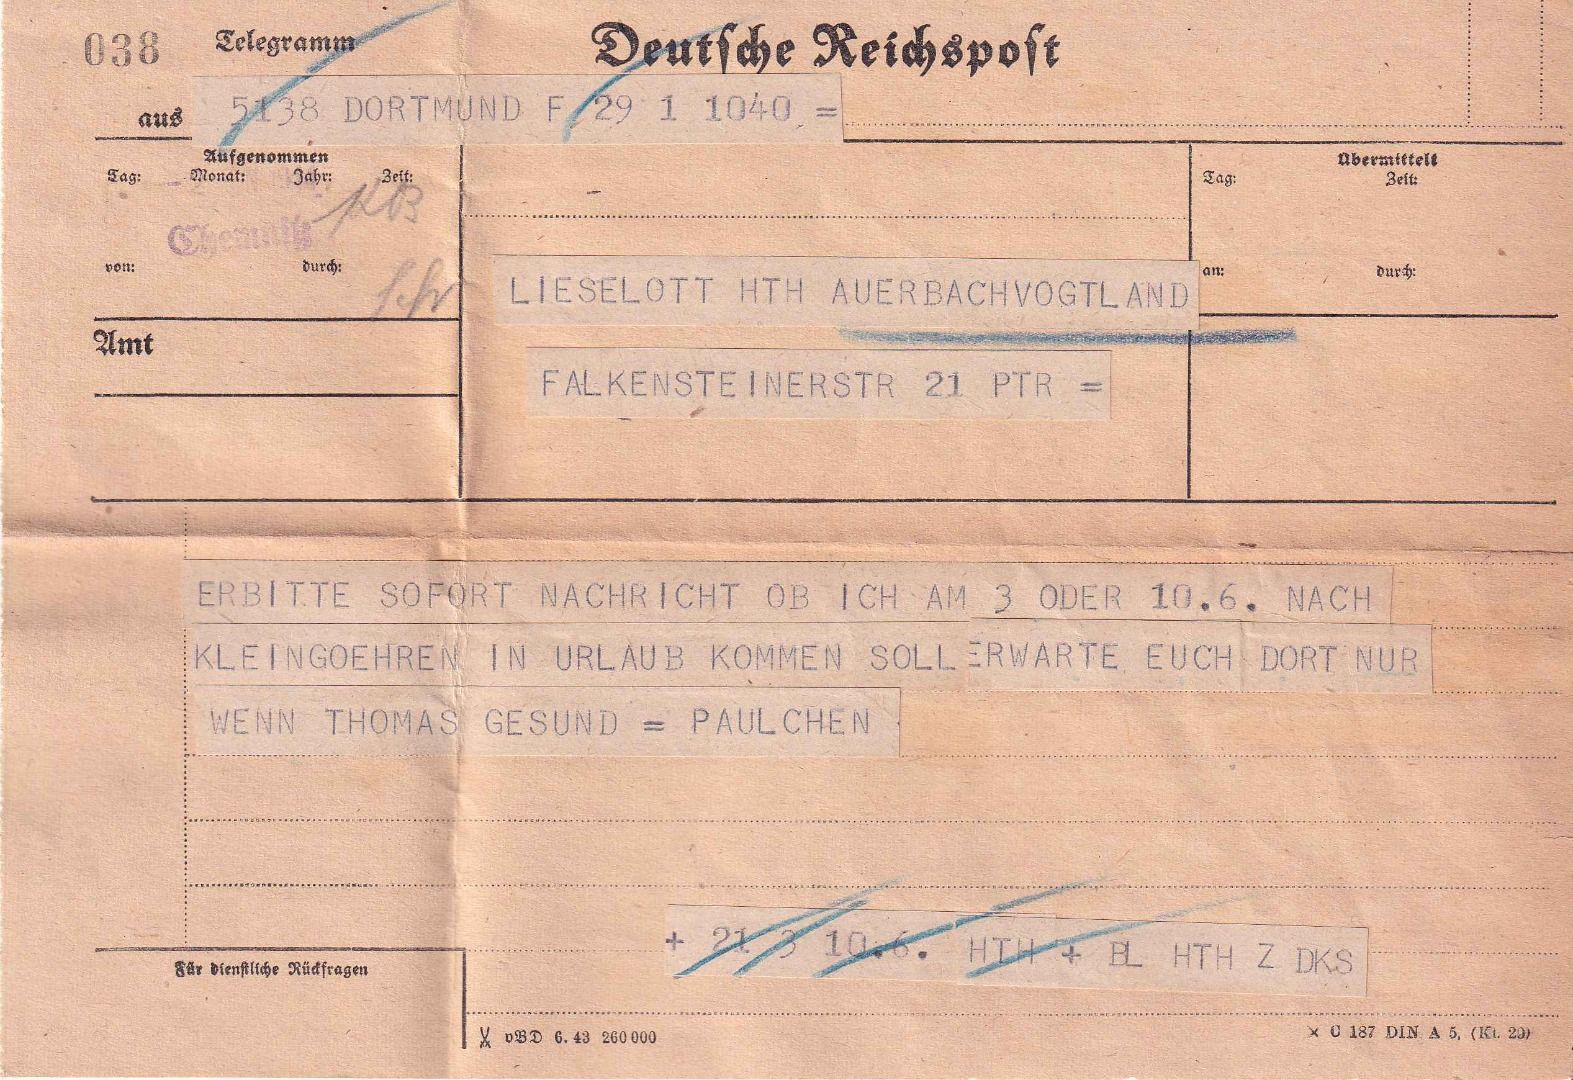 038 Telegramm Deutsche Reichspost
aus 5138 DORTMUND F 29 1 1040 =
Aufgenommen
Tag: Monat: Jahr: Zeit:
Übermittelt
Tag: Zeit:
Chemnitz
von: durch:
an: durch:
LIESELOTT HTH AUERBACHVOGTLAND
Amt
FALKENSTEINERSTR 21 PTR =
ERBITTE SOFORT NACHRICHT OB ICH AM 3 ODER 10.6. NACH
KLEINGOEHREN IN URLAUB KOMMEN SOLL ERWARTE EUCH DORT NUR
WENN THOMAS GESUND = PAULCHEN
+ 21 3 10.6. HTH + BL HTH Z DKS
Für dienstliche Rückfragen
vBD 6. 43 260 000
× C 187 DIN A 5, (Kl. 29)